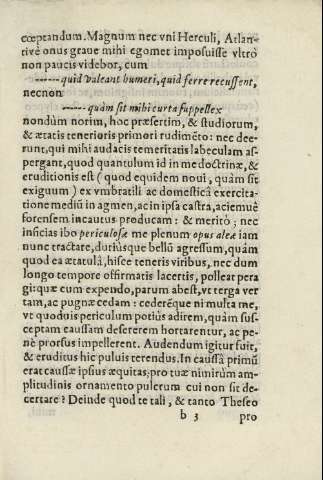 cœptandum. Magnum nec vni Herculi, Atlan-
tivè onus graue mihi egomet imposuisse vltrò
non paucis videbor, cum
------quid valeant humeri, quid ferre recusent,
necnon
-----quàm sit mihi curta supellex
nondùm norim, hoc præsertim, & studiorum,
& ætatis tenerioris primori rudimēto: nec dee-
runt, qui mihi audacis temeritatis labeculam as-
pergant, quod quantulum id in me doctrinæ, &
eruditionis est ( quod equidem noui, quàm sit
exiguum ) ex vmbratili ac domestică exercita-
tione mediū in agmen, ac in ipsa castra, aciemuè
forensem incautus producam: & meritò; nec
inficias ibo periculosæ me plenum opus aleæ iam
nunc tractare, duriùsque bellū agressum, quàm
quod ea ætatulâ, hisce teneris viribus, nec dum
longo tempore offirmatis lacertis, polleat pera
gi: quæ cum expendo, parum abest, vt terga ver
tam, ac pugnæ cedam: cederēque ni multa me,
vt quoduis periculum potiùs adirem, quàm sus-
ceptam caussam desererem hortarentur, ac pe-
nè prorsus impellerent. Audendum igitur fuit,
& eruditus hic puluis terendus. In caussâ primū
erat caussæ ipsius æquitas; pro tuæ nimirùm am-
plitudinis ornamento pulcrum cui non sit de-
certare? Deinde quod te tali, & tanto Theseo
b 3 pro